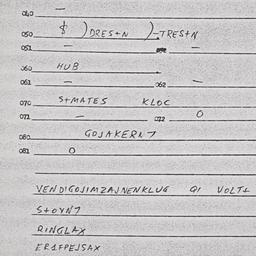 040 —
050 $ )DRES+N )-TRES+N
051 — 052 —
060 HUB
061 — 062 —
070 S+MATES KLOC
071 — 072 O
080 GOJAKERN7
081 O
VENDIGOJIMZAJNENKLUG QI VOLT+
S+OYN7
RINGLAX
ER1FPEJSAX